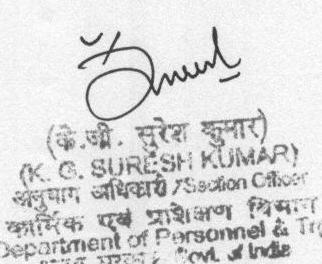 (के.जी. सुरेश कुमार)
(K. G. SURESH KUMAR)
अनुभाग अधिकारी /Section Officer
कार्मिक एवं प्रशिक्षण विभाग
Department of Personnel & Tr
भारत सरकार / Govt. of India